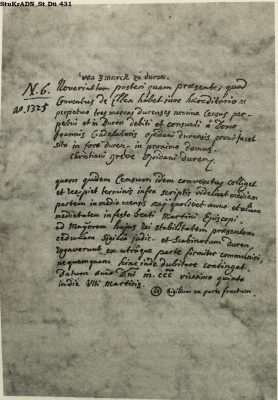 StuKrADN_St_Du 431
von 3 marck zu duren.
N. 6. Noverint tam posteri quam praesentes, quod
ao. 1325 Conventus de Ellen habet jure haereditario et
perpetuo tres marcas durenses nomine Census per-
petui et in Duren debiti et consueti a Domo
Joannis Candelatoris opidani durensis prout jacet
sita in foro duren, in proximo domus
Christiani greve opidani duren,
quem quidem Censum idem conventus colliget
et recipiet terminis infra scriptis videlicet mediam
partem in medio mensis may quolibet anno et aliam
medietatem in festo beati Martini Episcopi.
ad Majorem hujus rei stabilitatem praesentem
cedulam Sigillo judic. et Scabinorum duren,
rogaverunt ex utraque parte firmiter communiri,
ne quemquam hinc inde dubitare contingat.
Datum anno Dni m. ccc vicesimo quinto
in die Viti martiris.
Sigillum ex parte fractum